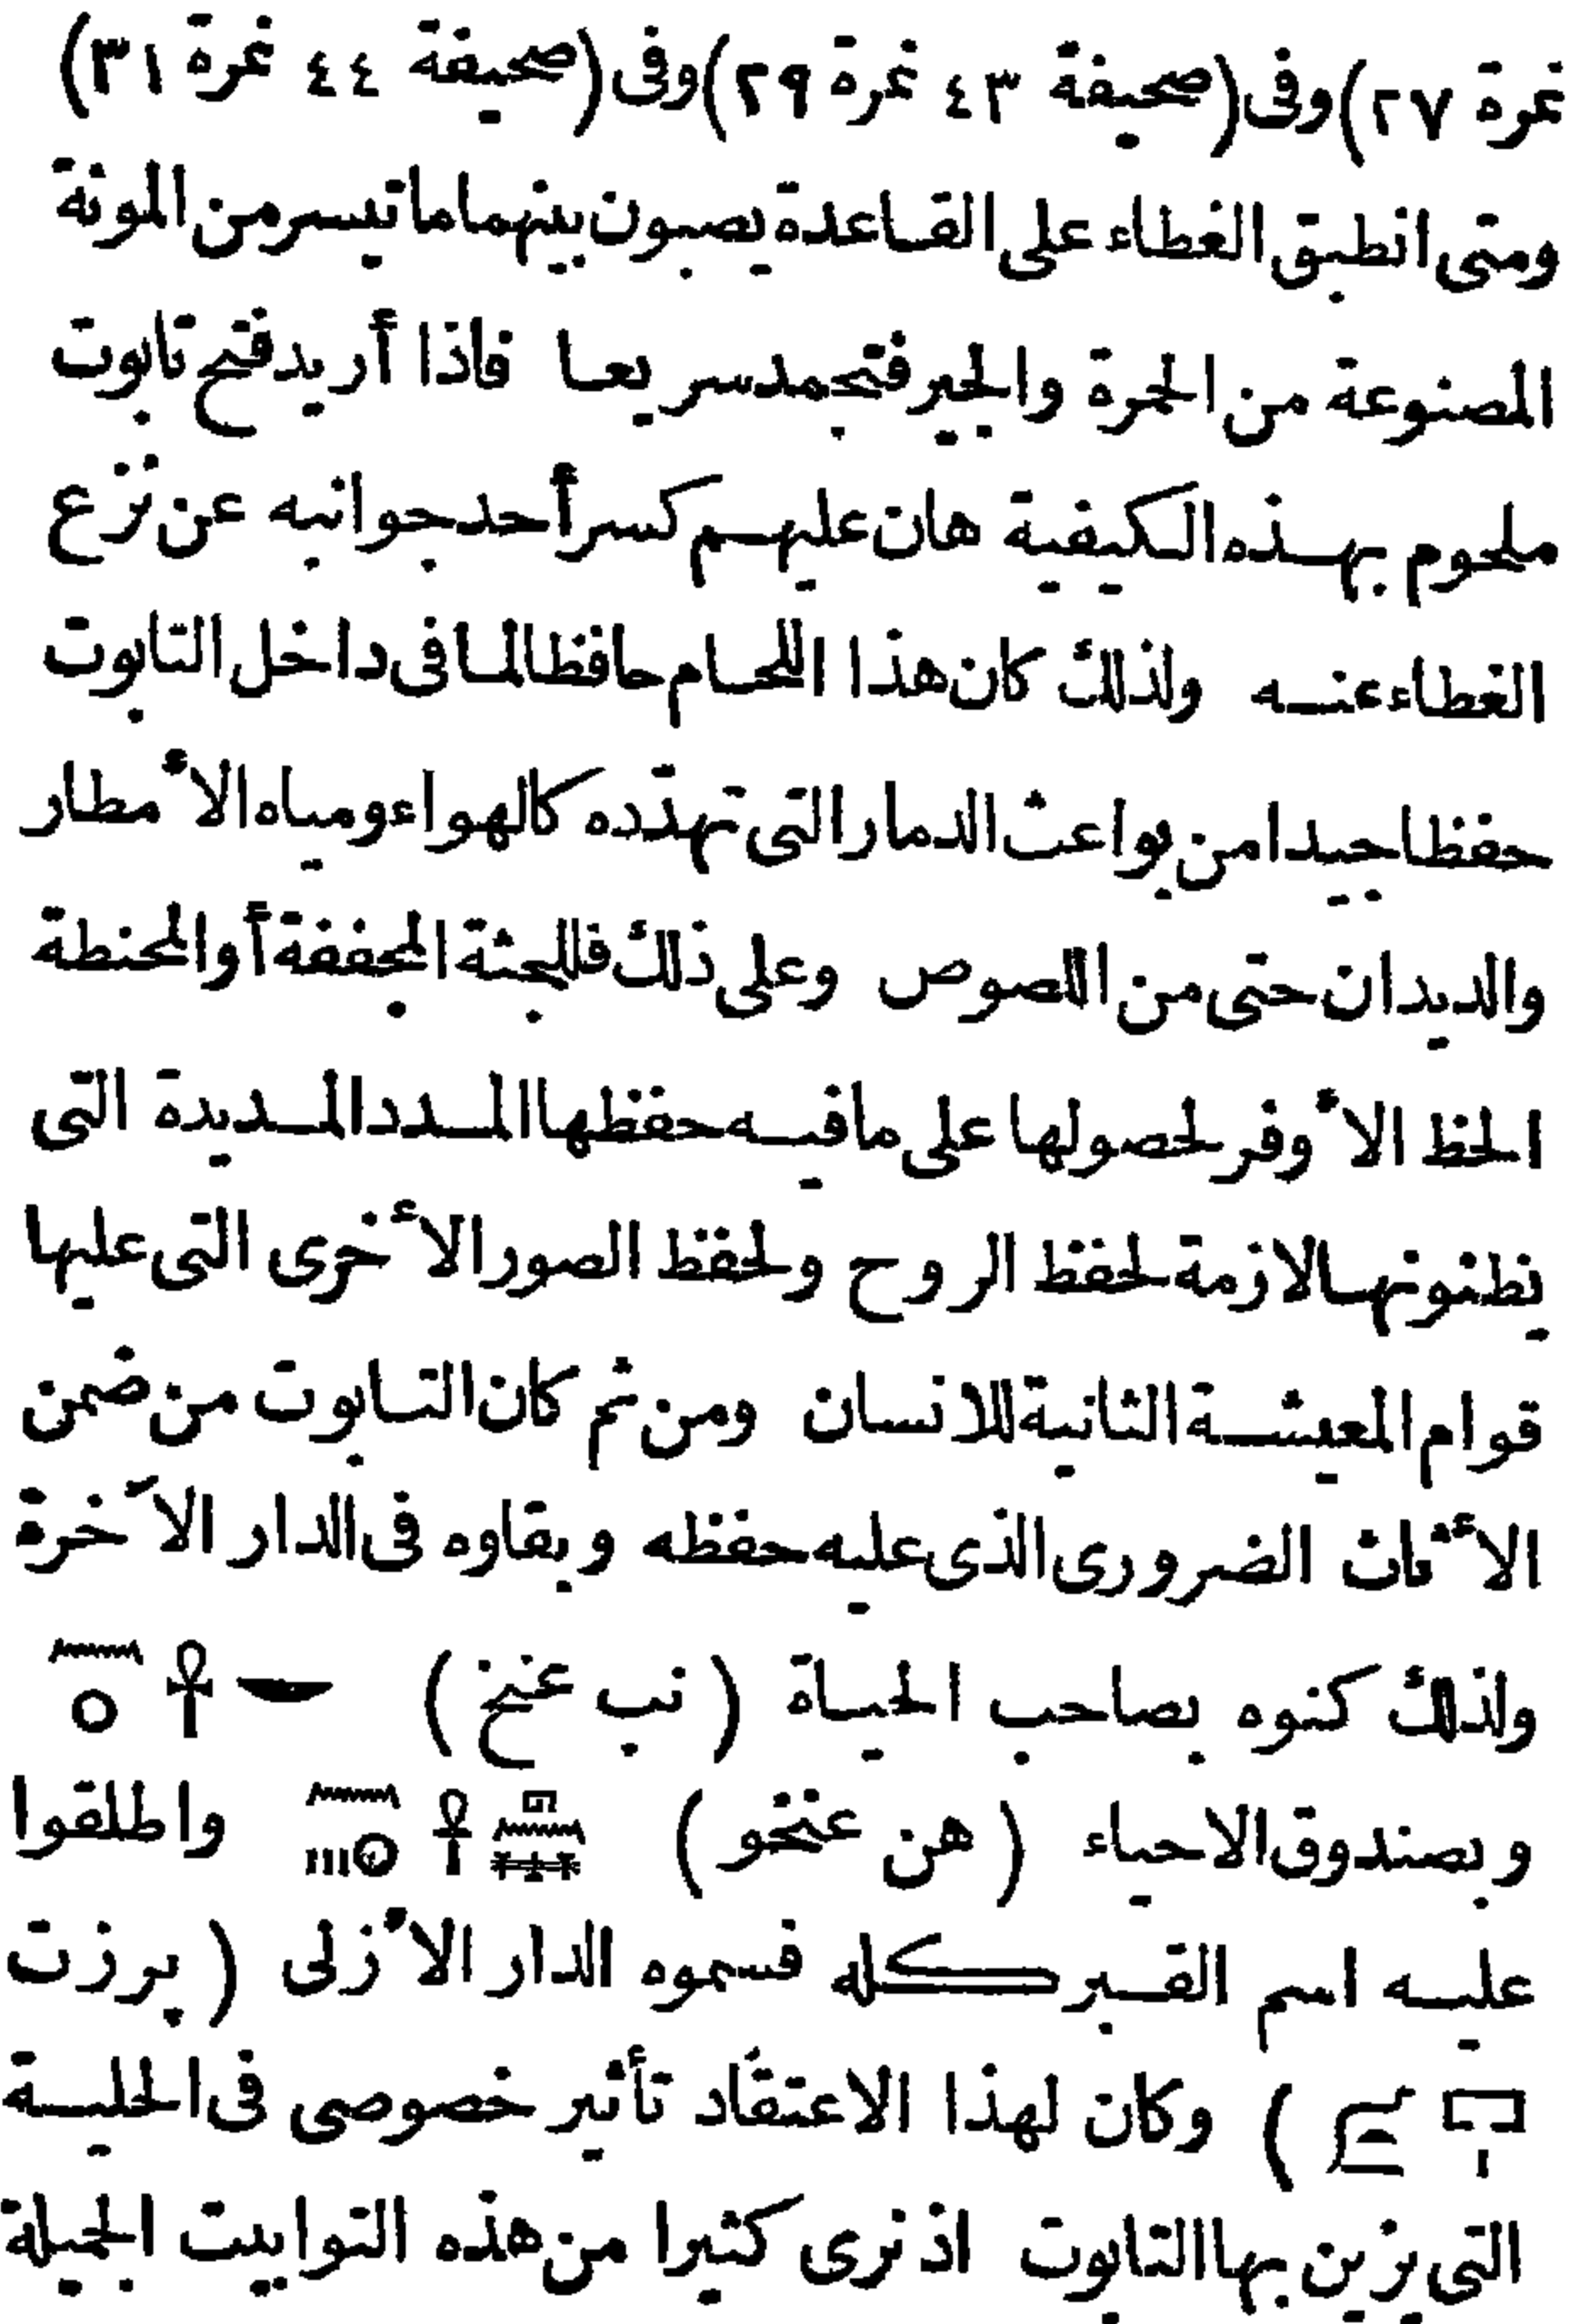 نمرة ٢٧) وفى (صحيفة ٤٣ نمرة ٢٩) وفى (صحيفة ٤٤ نمرة ٣١)
ومتى انطبق الغطاء على القاعدة يصبون بينهما ماتيسر من المونة
المصنوعة من الحمرة والجير فتجمد سريعا فاذا أريد فتح تابوت
ملحوم بهذه الكيفية هان عليهم كسر أحد جوانبه عن نزع
الغطاء عنه ولذلك كان هذا اللحام حافظا لما فى داخل التابوت
حفظا جيدا من بواعث الدمار التى تهدّده كالهواء ومياه الأمطار
والديدان حتى من اللصوص وعلى ذلك فللجثة المجففة أو المحنطة
الحظ الأوفر لحصولها على مافيه حفظها المدد المديدة التى
يظنونها لازمة لحفظ الروح ولحفظ الصور الأخرى التى عليها
قوام المعيشة الثانية للانسان ومن ثم كان التابوت من ضمن
الأثاث الضرورى الذى عليه حفظه وبقاوه فى الدار الآخرة
ولذلك كنوه بصاحب الحياة (نب عنخ) 𓎟 𓋹 𓈖 𓐍
وبصندوق الاحياء (هن عنخو) 𓋹 𓈖 𓐍 واطلقوا
عليه اسم القبر كله فسموه الدار الأزلى (پرزت
𓉐 𓏤) وكان لهذا الاعتقاد تأثير خصوصى فى الحلية
التى يزين بها التابوت اذ نرى كثيرا من هذه التوابيت الجميلة